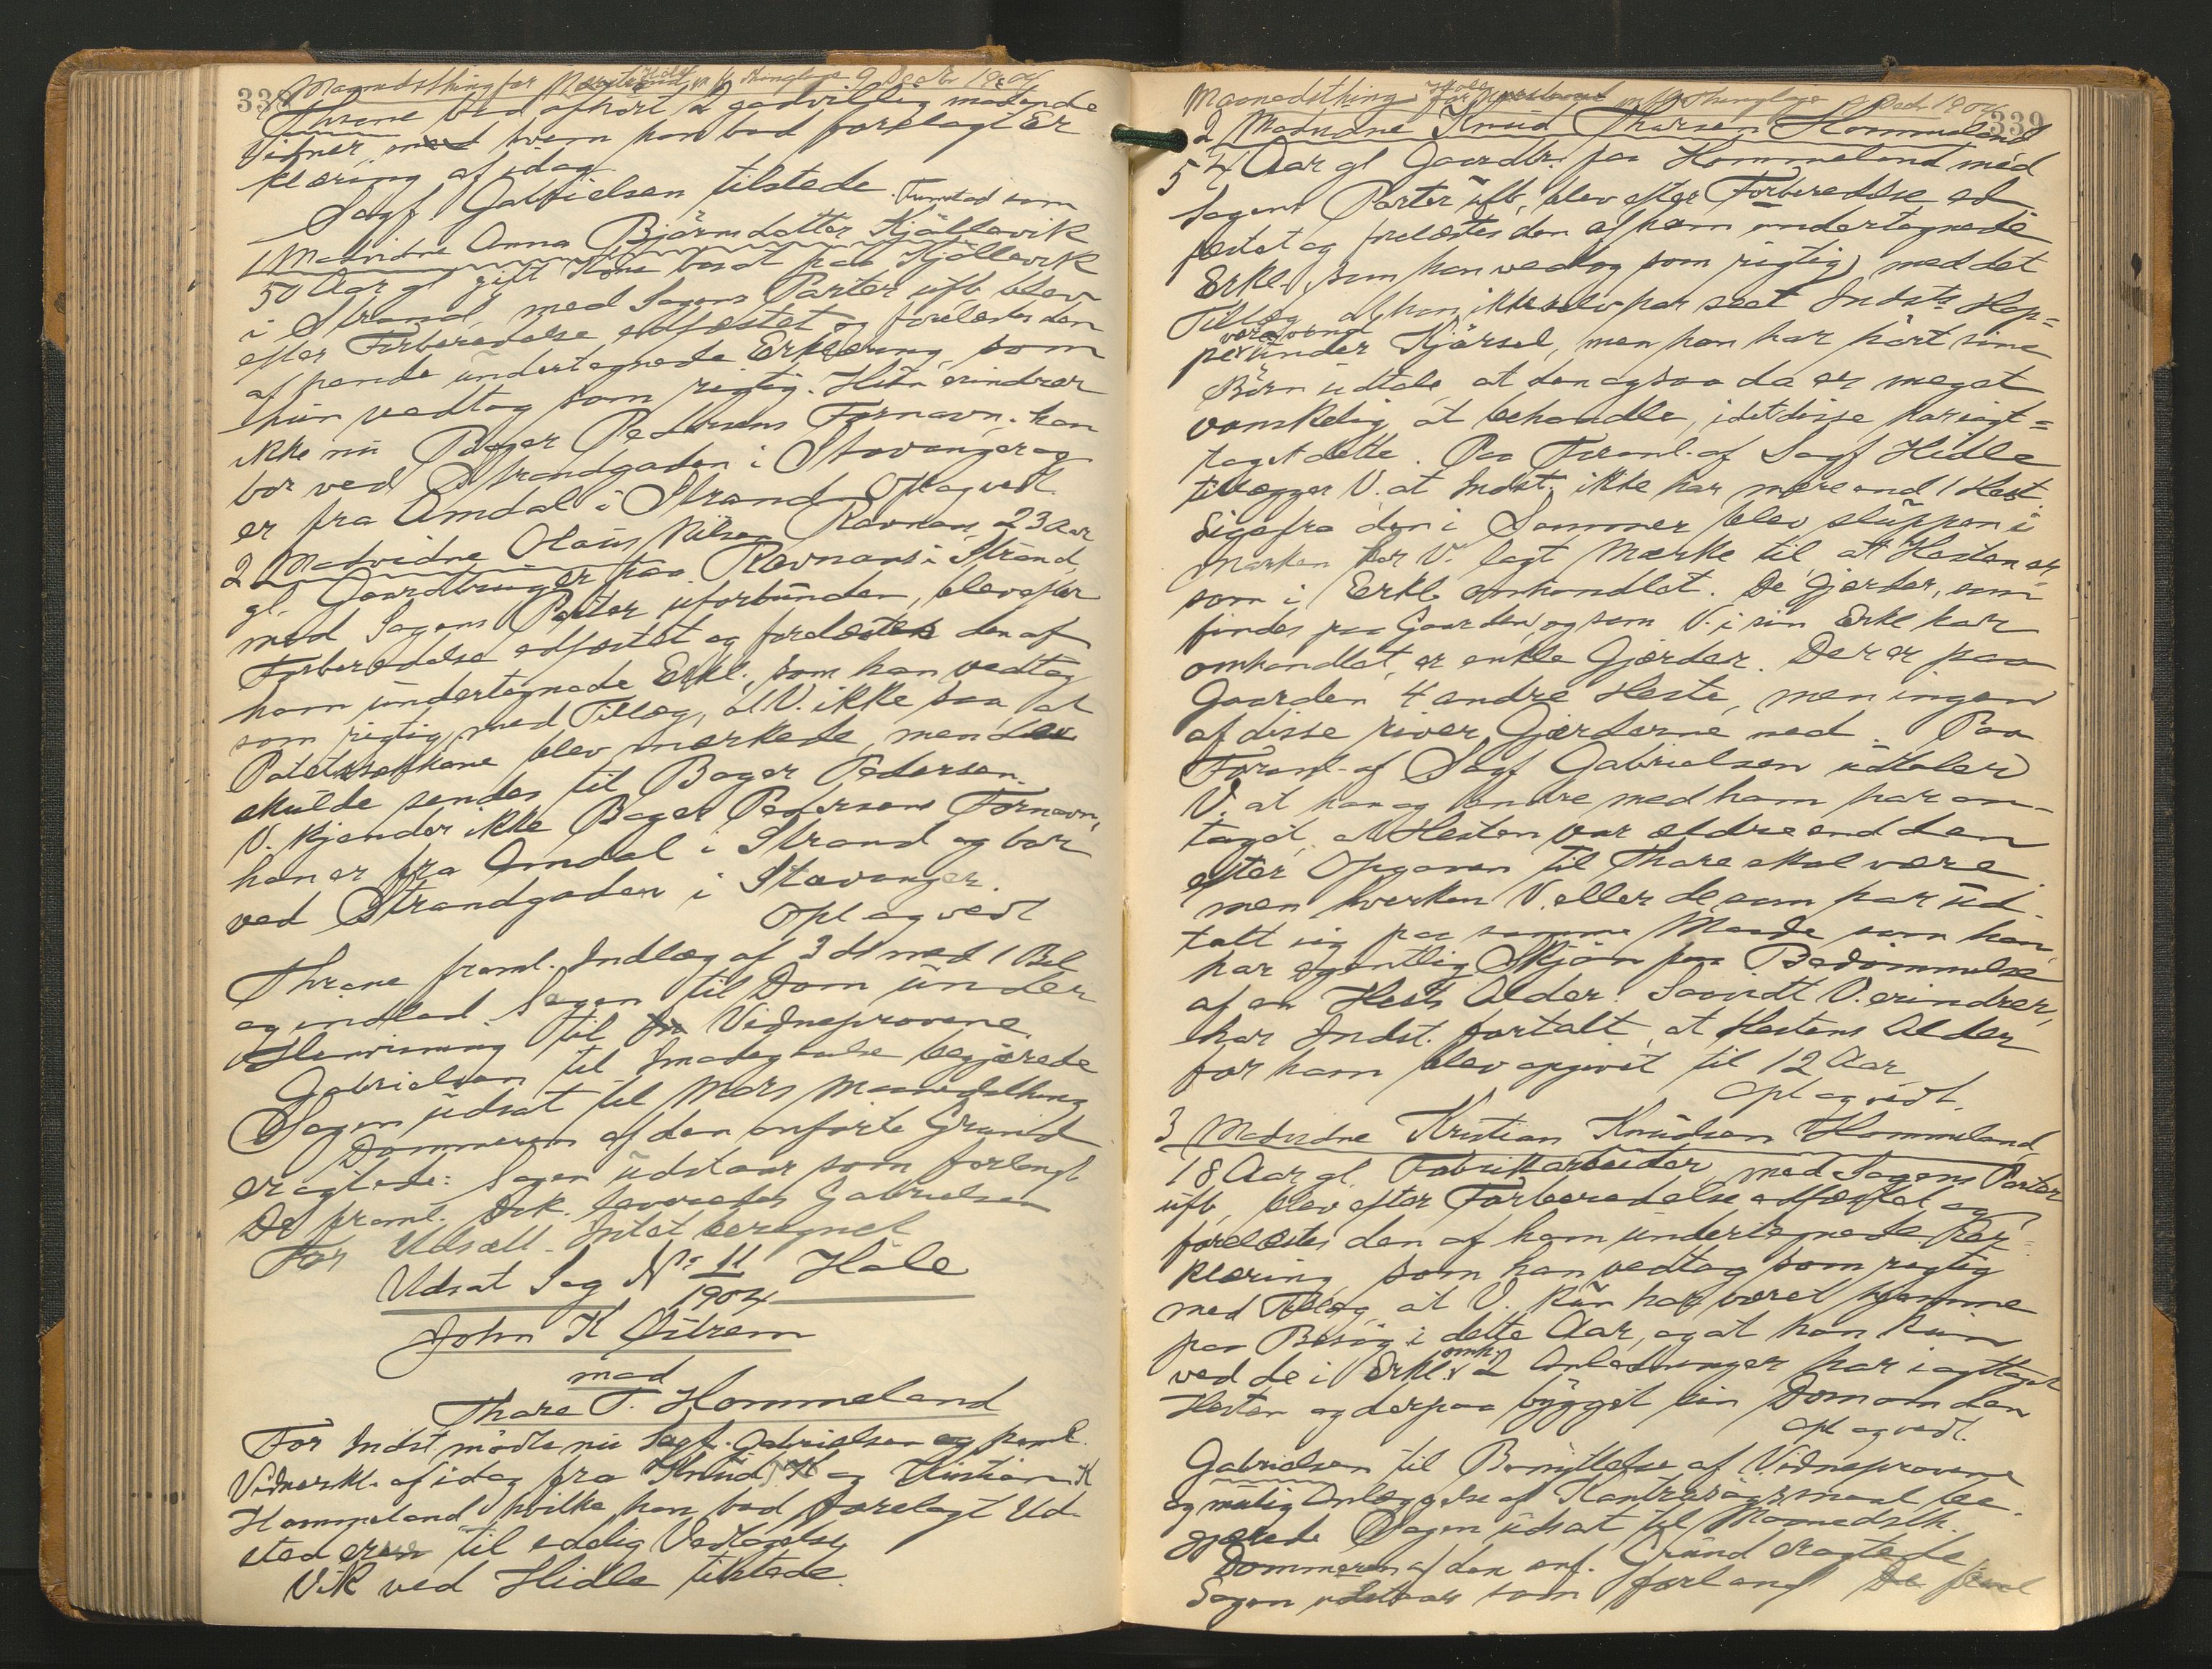 338
Maanedsthing for m fl Thinglage 9 Decbr 1904
Thrane bad afhørt 2 godvillig mødende
Vidner, hvem han bad forelagt Er
klæring af idag.
Sagf Gabrielsen tilstede. Tumstad som
1 Madvidne Anna Bjørnsdatter Kjøllevik
50 Aar gl gift Kone bosat paa Kjøllevik
i Strand, med Sagens Parter ufb blev
efter Forberedelse edfæstet og forelæstes den
af hende undertegnede Erklæring, som
hun vedtog som rigtig. Hun erindrer
ikke nu Bager Pedersens Fornavn. han
bor ved Strandgaden i Stavanger og
er fra Amdal i Strand Opl og vedt
2 Madvidne Olaus Nilsen Ravnaas, 23 Aar
gl. Gaardbruger paa Ravnaas i Strand,
med Sagens Parter uforbunden, blev efter
Forberedelse edfæstet og forelæstes den af
ham undertegnede Erkl., som han vedtog
som rigtig, med Tillæg, at V. ikke saa at
Potetsækkene blev mærkede, men de
skulde sendes til Bager Pedersen.
V. kjender ikke Bager Pedersens Fornavn,
han er fra Amdal i Strand og bor
ved Strandgaden i Stavanger.
Opl og vedt
Thrane freml. Indlæg af 3 ds med 1 Bil
og indlod Sagen til Dom under
Henvisning til Vidneprovene.
Gabrielsen til Imødegaaelse begjærede
Sagen udsat til Mars Maanedsthing
Dommeren af den anførte Grund
eragtede: Sagen udstaar som forlangt
De freml. Dok. leveredes Gabrielsen
For Udsætt. Intet beregnet
Udsat Sag No 11/1904 Hole
John K Østrem
mod
Thore T. Hommeland
For Indst mødte nu Sagf. Gabrielsen og freml.
Vidnerkl. af idag fra Knud og Kristian K
Hommeland hvilke han bad forelagt Ud-
stederne til edelig Vedtagelse
V.K ved Hidle tilstede.
339
Maanedsthing for m fl Thinglage 9 Decbr 1904
2 Madvidne Knud Thorsen Hommeland
54 Aar gl Gaardbr. paa Hommeland med
Sagens Parter ufb, blev efter Forberedelse ed
fæstet og forelæstes den af ham undertegnede
Erkl. som han vedtog som rigtig, med det
Tillæg at han ikke selv har seet Indsts Hop-
pe under Kjørsel, men han har hørt sine
Børn udtale, at den ogsaa da er meget
vanskelig at behandle, idet disse har iagt-
taget dette. Paa Foranl. af Sagf Hidle
tillægger V. at Indst. ikke har mere end 1 Hest
Ligefra den i Sommer blev sluppen i
Marken har V. lagt Mærke til, at Hesten er
som i Erkl. omhandlet. De Gjerder, som
findes paa Gaarden, og som V. i sin Erkl har
omhandlet, er enkle Gjerder. Der er paa
Gaarden 4 andre Heste, men ingen
af disse river Gjerderne ned. Paa
Foranl. af Sagf Gabrielsen udtaler
V. at han og andre med ham har an-
taget, at Hesten var ældre end den
efter Opgaven til Thore skal være
men hverken V. eller de som har ud-
talt sig paa samme Maade som han,
har egentlig Skjøn paa Bedømmelse
af en Hests Alder. Saavidt V. erindrer,
har Indst. fortalt, at Hestens Alder
for ham blev opgivet til 12 Aar
Opl og vedt.
3 Madvidne Kristian Knudsen Hommeland
18 Aar gl. Fabrikarbeider, med Sagens Parter
ufb, blev efter Forberedelse edfæstet og
forelæstes den af ham undertegnede Er-
klæring, som han vedtog som rigtig
med Tillæg, at V. kun har været hjemme
paa Besøg i dette Aar, og at han kun
ved de i Erkl. omh. 2 Anledninger har iagttaget
Hesten og derpaa bygget sin Dom om den
Opl og vedt.
Gabrielsen til Benyttelse af Vidneprovene
og mulig Anlæggelse af Kontrasøgsmaal be-
gjærede Sagen udsat til Maanedsth.
Dommeren af den anf. Grund eragtede
Sagen udstaar som forlangt De freml